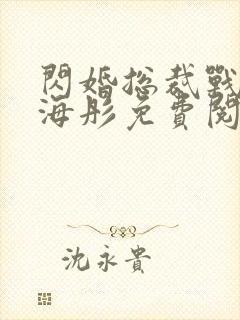 閃婚總裁戰
海彤免費閱
沈永貴